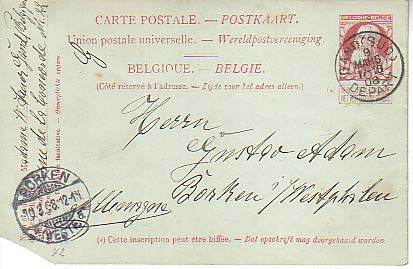 CARTE POSTALE. - POSTKAART.
Union postale universelle. - Wereldpostvereeniging.
BELGIQUE. - BELGIE.
(Côté réservé à l'adresse. - Zijde voor het adres alleen.)
Herrn
Gustav Adam
Borken i/Westphalen
Allemagne
(*) Cette inscription peut être biffée. - Dat opschrift mag doorgehaald worden.
DEPART
9
MARS
08
BORKEN
10.3.08.12-1N
(WESTF)